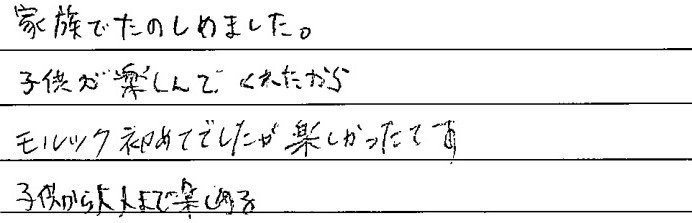 家族でたのしめました。
子供が楽しんでくれたから
モルック初めてでしたが楽しかったです
子供から大人まで楽しめる